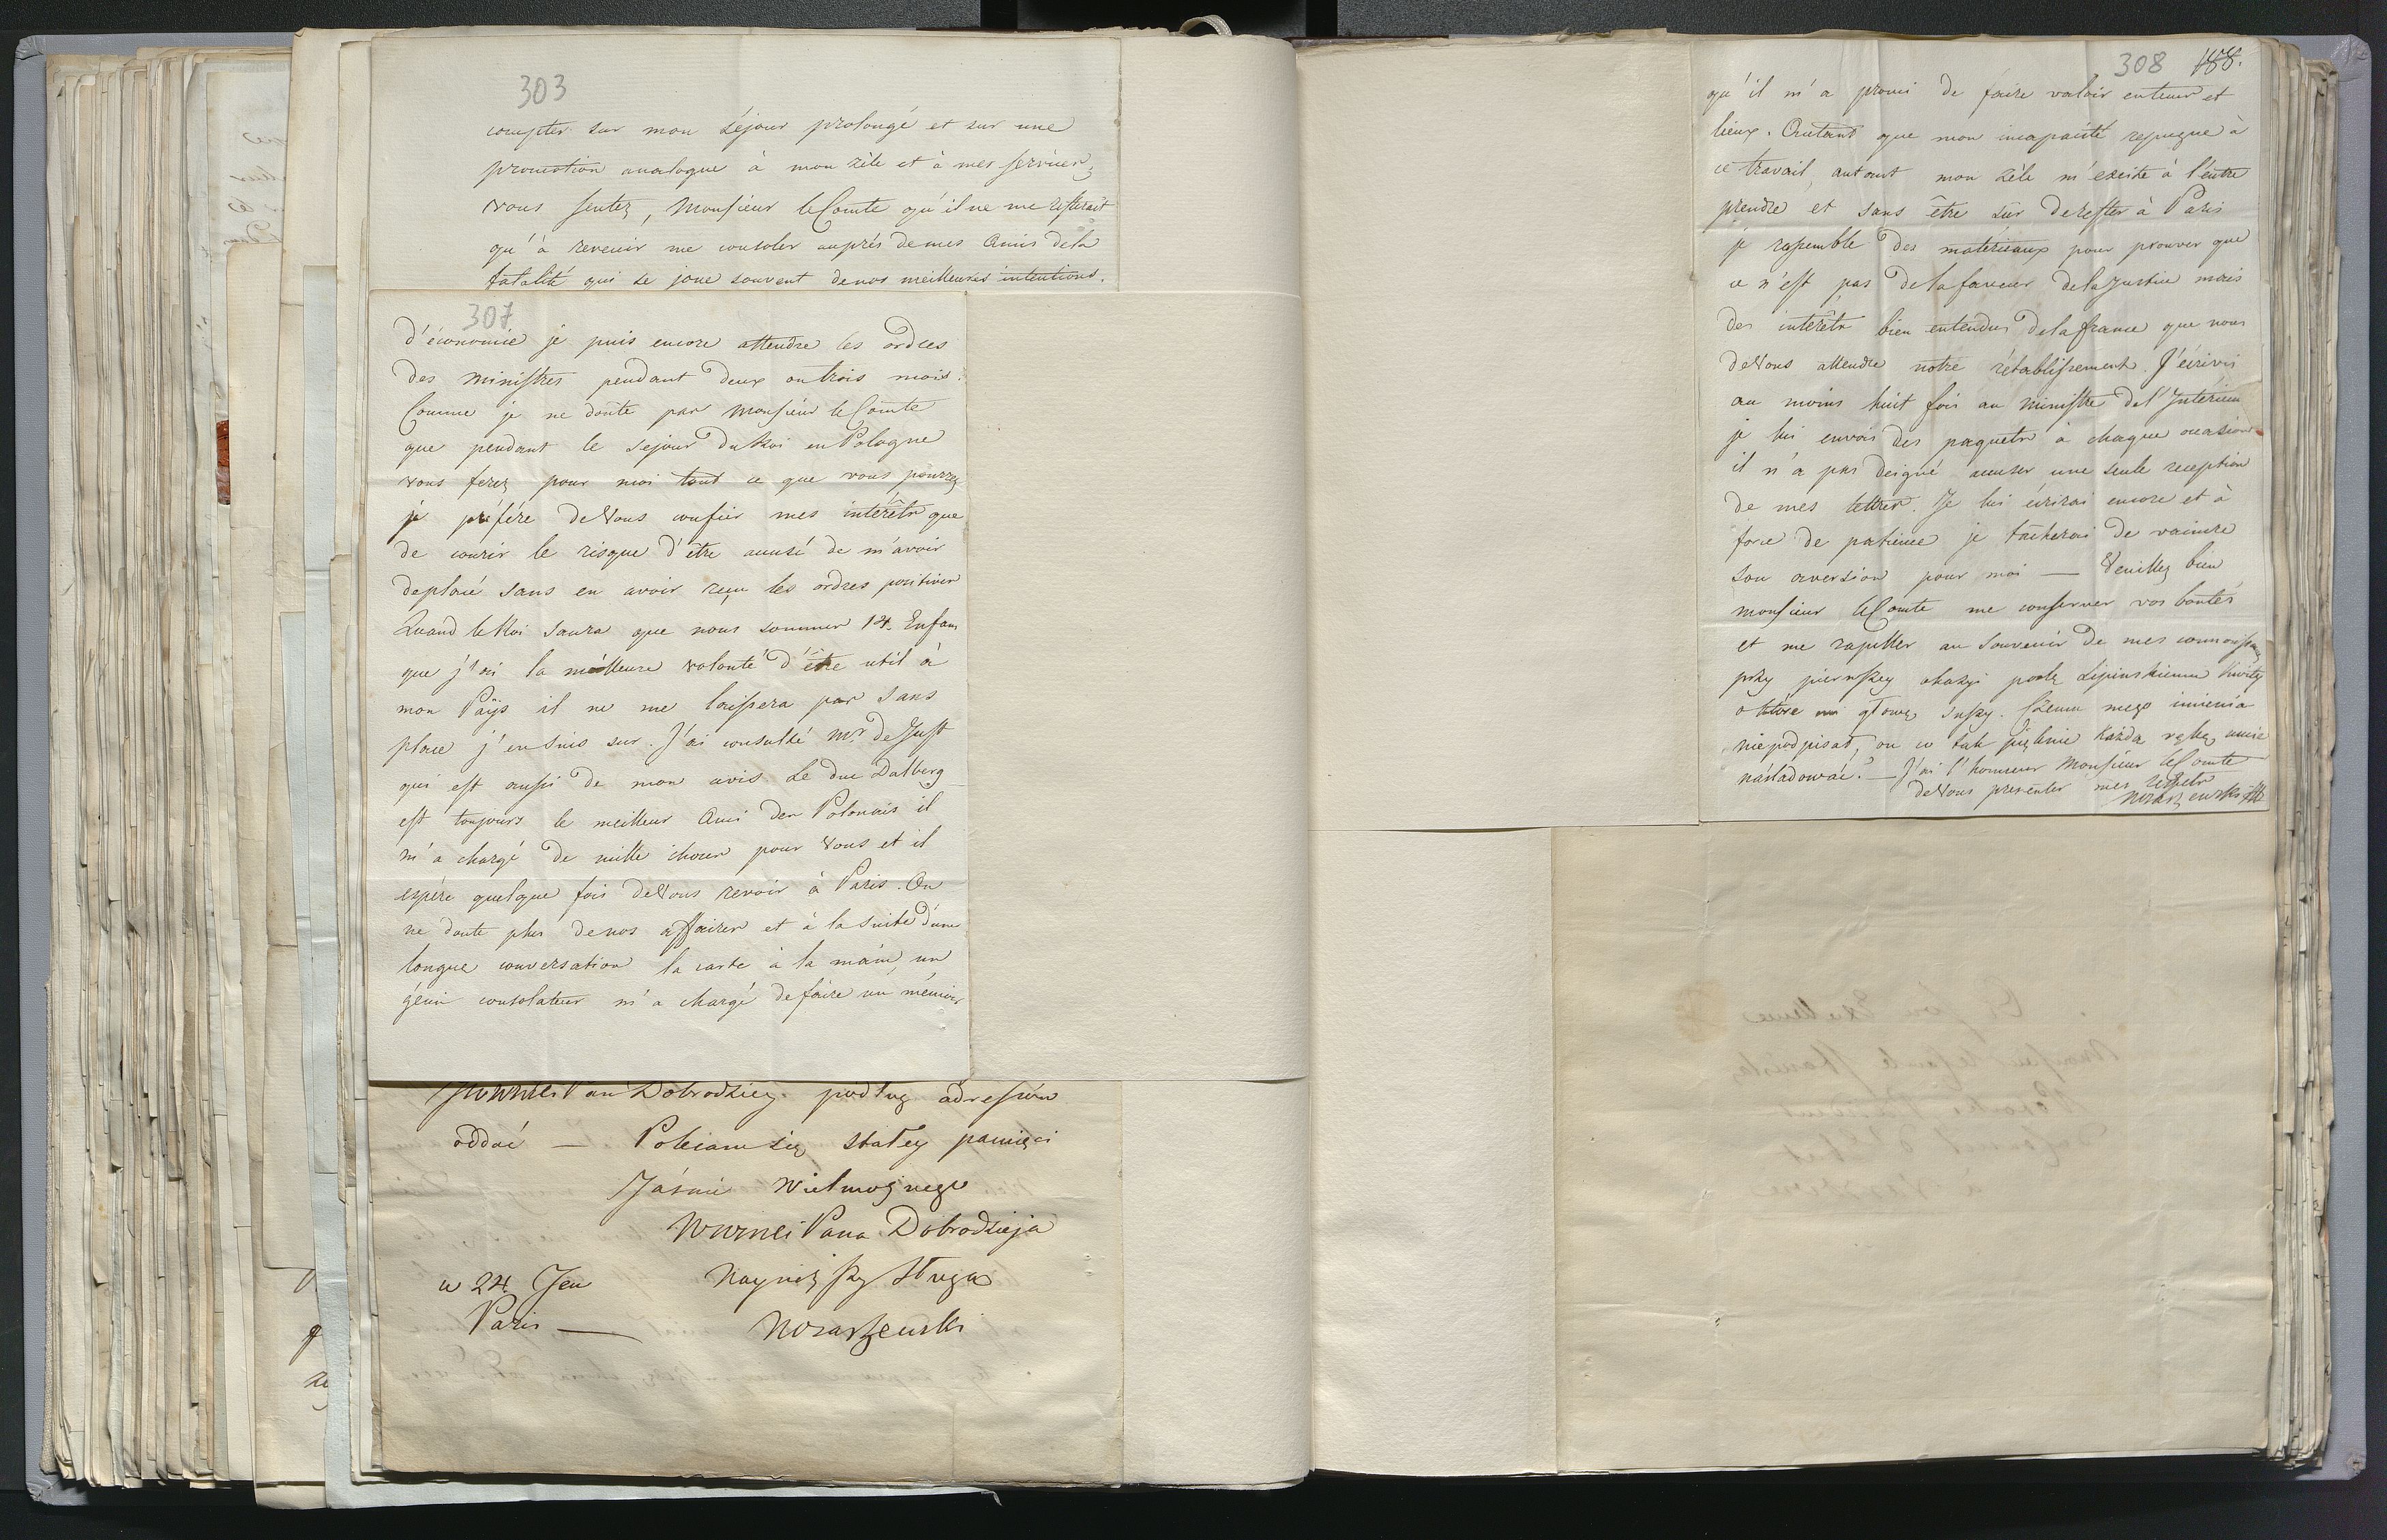 303
compter sur mon séjour prolongé et sur une
promotion analogue à mon zéle et à mes services
vous sentez, Monsieur le Comte qu'il ne me resterait
qu'à revenir me consoler auprés de mes Amis de la
fatalité qui se joue souvent de nos meilleures intentions.
307
d'économie je puis encore attendre les ordres
des Ministres pendant deux ou trois mois.
Comme je ne doute pas Monsieur le Comte
que pendant le sejour du Roi en Pologne
vous ferez pour moi tout ce que vous pourrez
je préfére de Vous confier mes intérêts que
de courir le risque d'être accusé de m'avoir
deplacé sans en avoir reçu les ordres positives
Quand le Roi saura que nous sommes 14 Enfans
que j'ai la meilleure volonté d'être util à
mon Païs il ne me laissera pas sans
place j'en suis sur. J'ai consulté Mr. de Just
qui est aussi de mon avis Le duc Dalberg
est toujours le meilleur Ami des Polonais il
m'a chargé de mille choses pour Vous et il
espére quelque fois de Vous revoir à Paris. On
ne doute plus de nos affaires et à la suite d'une
longue conversation la carte à la main, un
génie consolateur m'a chargé de faire un mémoire
Pan Dobrodziey podług adressów
oddać — Polecam się stałey pamięci
Jaśnie Wielmożnego
Pana Dobrodzieja
w 24 Jea
Nayniższy Sługa
Paris —
Moraszewski
308 188.
qu'il m'a promi de faire valoir en tems et
lieux. Autant que mon incapacité repugne à
ce travail, autant mon zéle m'excite à l'entre
prendre et sans être sûr de rester à Paris
je rassemble des matériaux pour prouver que
ce n'est pas de la faveur de la justice mais
des intérêts bien entendus de la france que nous
devons attendre notre rétablissement. J'écrivis
au moins huit fois au Ministre de l'Interieur
je lui envois des paquets à chaque occasion
il n'a pas deigné accuser une seule reception
de mes lettres. Je lui écrirai encore et à
force de patience je tacherai de vaincre
son aversion pour moi — Veuillez bien
Monsieur le Comte me conserver vos bontés
et me rapeller au Souvenir de mes connoissances
przy pierwszey okazyi poszlę Lipinskiemu kwity
o które głowę suszy. Czemu mego imienia
nie podpisał, on co tak pięknie każdą rękę umie
naśladować? — J'ai l'honneur Monsieur le Comte
de Vous presenter mes respets
Moraszewski
A Son Excellence
Monsieur le Comte Stanislas
Potocki Président
du Conseil d'Etat
à Varsovie